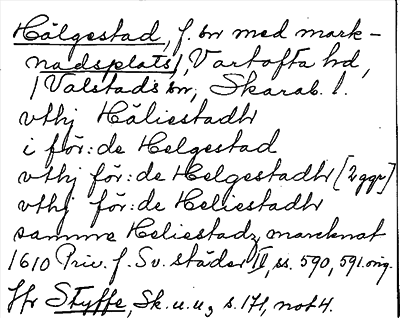 Hälgestad, f. bn med mark-
nadsplats, Vartofta hd,
Valstads sn, Skarab. l.
vthj Häliestadhr
i för:de Helgestad
vthj för:de Helgestadhr [2 ggr]
vthj för:de Heliestadhr
samme Heliestadz marcknat
1610 Priv. f. Sv. städer II, ss. 590, 591. orig.
Jfr Styffe, Sk. u. u., s. 171, not 4.